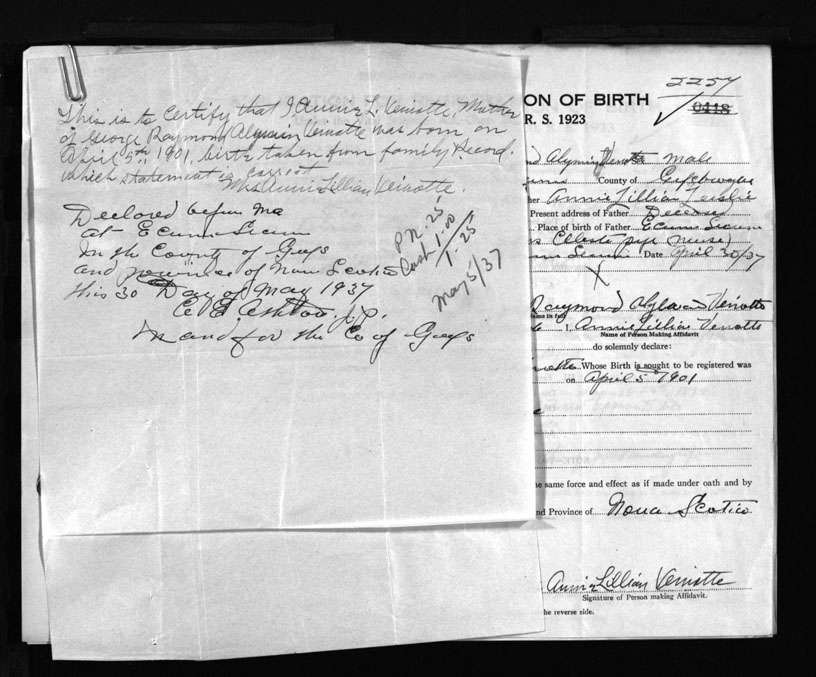 This is to certify that I Annie L. Veinotte, Mother
of George Raymond Veinotte was born on
April 5th 1901, birth taken from family Record.
which statement is correct
Mrs Annie Lillian Veinotte.
Declared before Me
at Ecum Secum
In the County of Guys
and province of Nova Scotia
this 30 Day of May 1937
J.P.
In and for the Co of Guys
P.N. 25
Cash 1.00
1.25
May 5/37
2257
ON OF BIRTH
0418
R. S. 1923
Male
County of
Annie Lillian
Present address of Father
Place of birth of Father Ecum Secum
Date April 30/37
X
Raymond Veinotte
I, Annie Lillian Veinotte
Name of Person Making Affidavit
do solemnly declare:
Whose Birth is sought to be registered was
on April 5 1901
same force and effect as if made under oath and by
nd Province of Nova Scotia
Annie Lillian Veinotte
Signature of Person making Affidavit.
he reverse side.